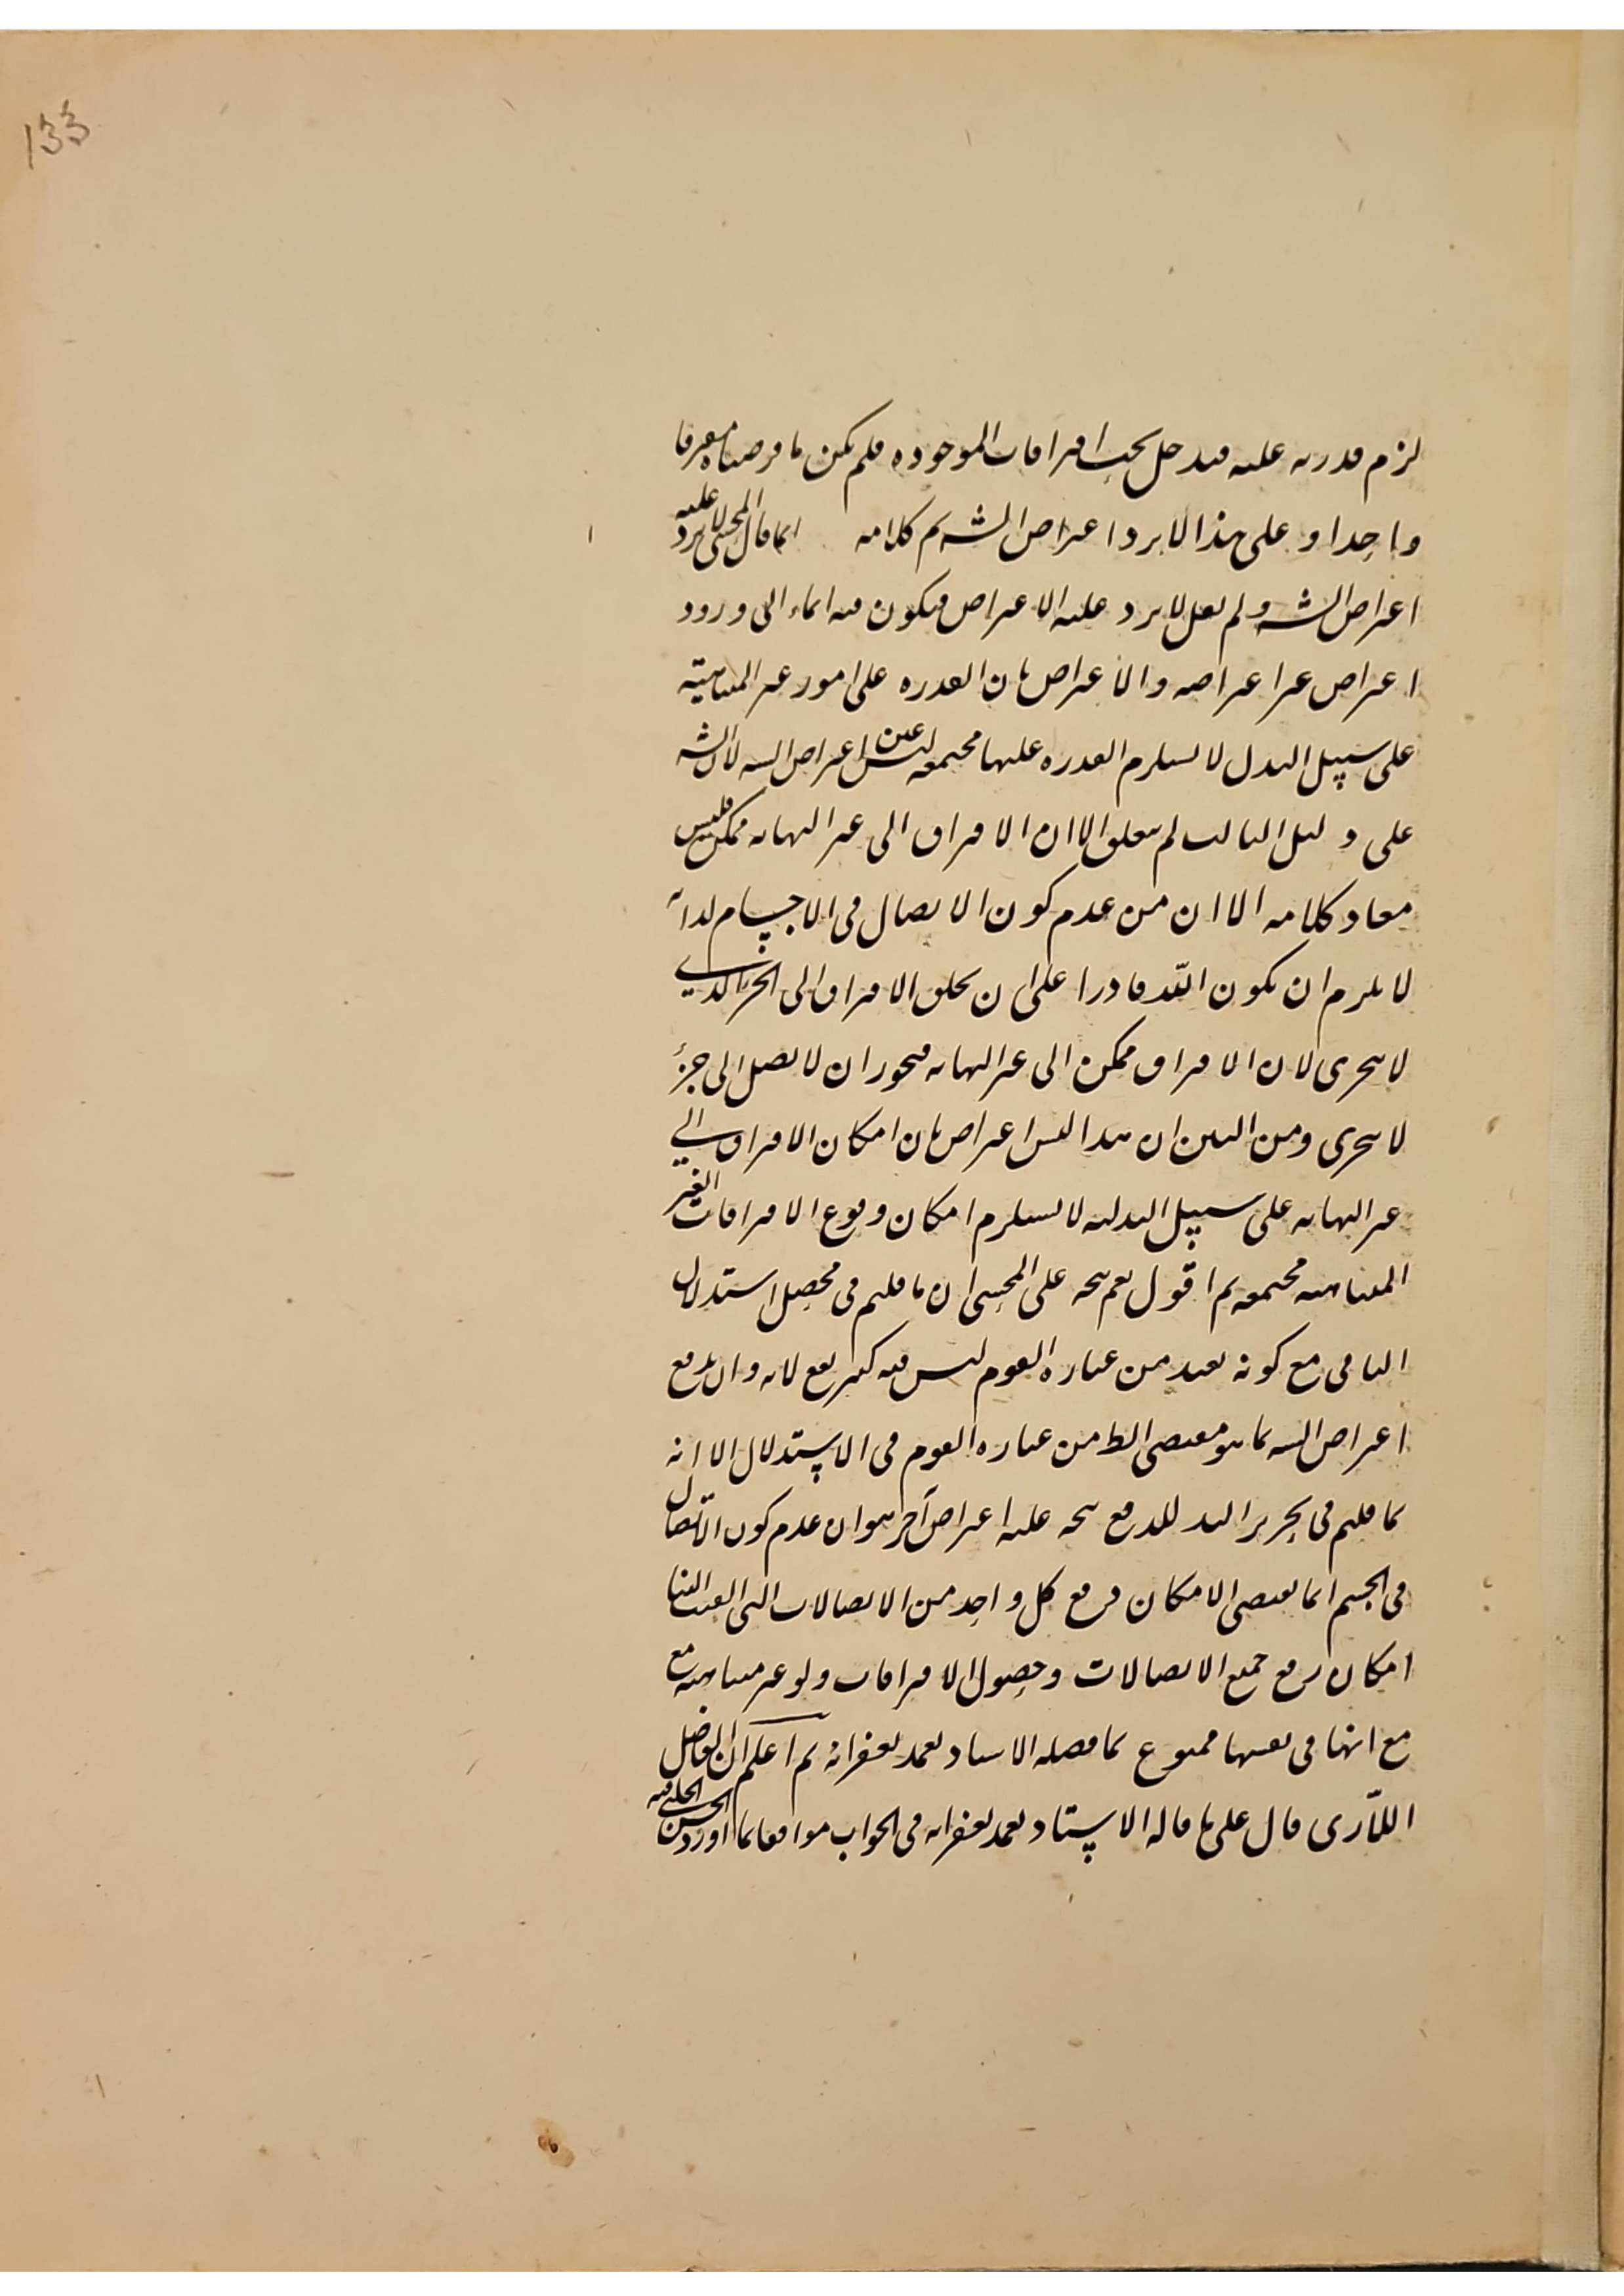 133
لزم قدرته عليه فيدخل تحت افتراقات الموجوده فلم يكن ما فرضناه مفترقا
واحدا و على هذا لا يرد اعتراض الشه تم كلامه انما قال المحشى لا يرد عليه
اعتراض الشه و لم يقل لا يرد عليه الاعتراض فيكون فيه ايماء الى ورود
اعتراض غير اعتراضه والاعتراض بان القدره على امور غير المتناهيته
على سبيل البدل لا يستلزم القدره عليها مجتمعه ليس عين اعتراض الشه لان الشه
على دليل الثالث لم يتعلق الا ان الافتراق الى غير النهايه ممكن فليس
مفاد كلامه الا ان من عدم كون الاتصال فى الاجسام لذاته
لا يلزم ان يكون الله قادرا على ان يخلق الافتراق الى الجزء الذي
لا يتجزى لان الافتراق ممكن الى غير النهايه فيجوز ان لا يصل الى جزء
لا يتجزى ومن البين ان هذا ليس اعتراض بان امكان الافتراق الي
غير النهايه على سبيل البدليه لا يستلزم امكان وقوع الافتراقات الغير
المتناهيه مجتمعه ثم اقول نعم يتجه على المحشى ان ما قلتم فى محصل استدلال
النافى مع كونه بعيد من عباره القوم ليس فيه كثير نفع لانه وان يدفع
اعتراض الشه كما هو مقتضى الظ من عباره القوم فى الاستدلال الا انه
كما قلتم فى تحرير للدفع يتجه عليه اعتراض آخر هو ان عدم كون الاتصال
فى الجسم انما يقتضى الامكان رفع كل واحد من الاتصالات التى
امكان رفع جميع الاتصالات وحصول الافتراقات ولو غير متناهيه مع
مع انها فى نفسها ممنوع كما فصله الاستاد تغمد بغفرانه ثم اعلم ان الفاضل
اللآرى قال على ما قاله الاستاد تغمد بغفرانه فى الجواب موافقا لما اورد